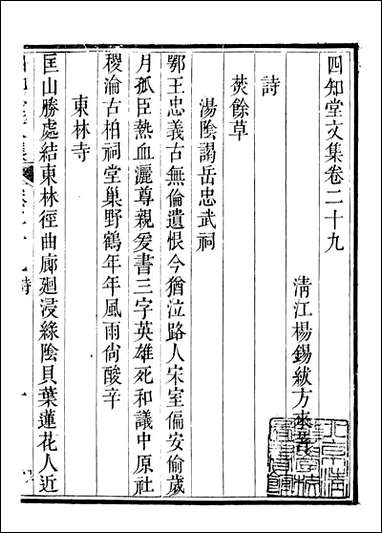 四知堂文集卷二十九
清江楊錫紱方來著
詩
焚餘草
湯陰謁岳忠武祠
鄂王忠義古無倫遺恨今猶泣路人宋室偏安偷歲
月孤臣熱血灑尊親爰書三字英雄死和議中原社
稷淪古柏祠堂巢野鶴年年風雨尙酸辛
東林寺
匡山勝處結東林徑曲廊廻浸綠陰貝葉蓮花人近